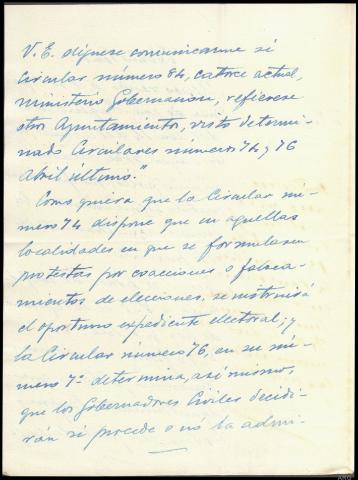 V. E. dígnese comunicarme si
Circular número 84, catorce actual,
ministerio Gobernación, refierese
otros Ayuntamientos, visto determi-
nado Circulares números 74 y 76
Abril último."
Como quiera que la Circular nú-
mero 74 dispone que en aquellas
localidades en que se formulasen
protestas por coacciones o falsea-
mientos de elecciones, se instruirá
el oportuno expediente electoral; y
la Circular número 76, en su nú-
mero 7º determina, así mismo,
que los Gobernadores Civiles decidi-
rán si procede o no la admi-